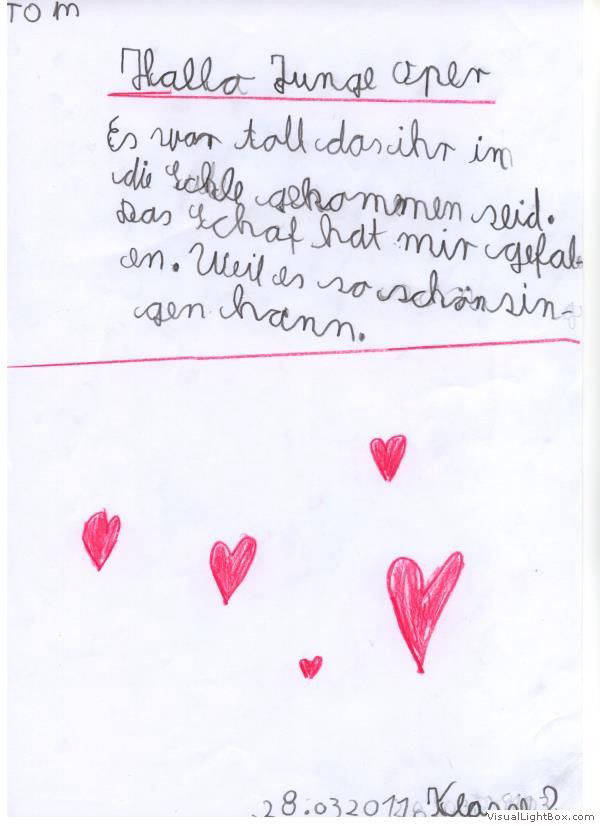 TOM
Hallo Junge Oper
Es war toll das ihr in
die Schle gekommen seid.
Das Schaf hat mir gefal-
en. Weil es so schön sin-
gen kann.
28.03.2011 Klasse 2
VisualLightBox.com